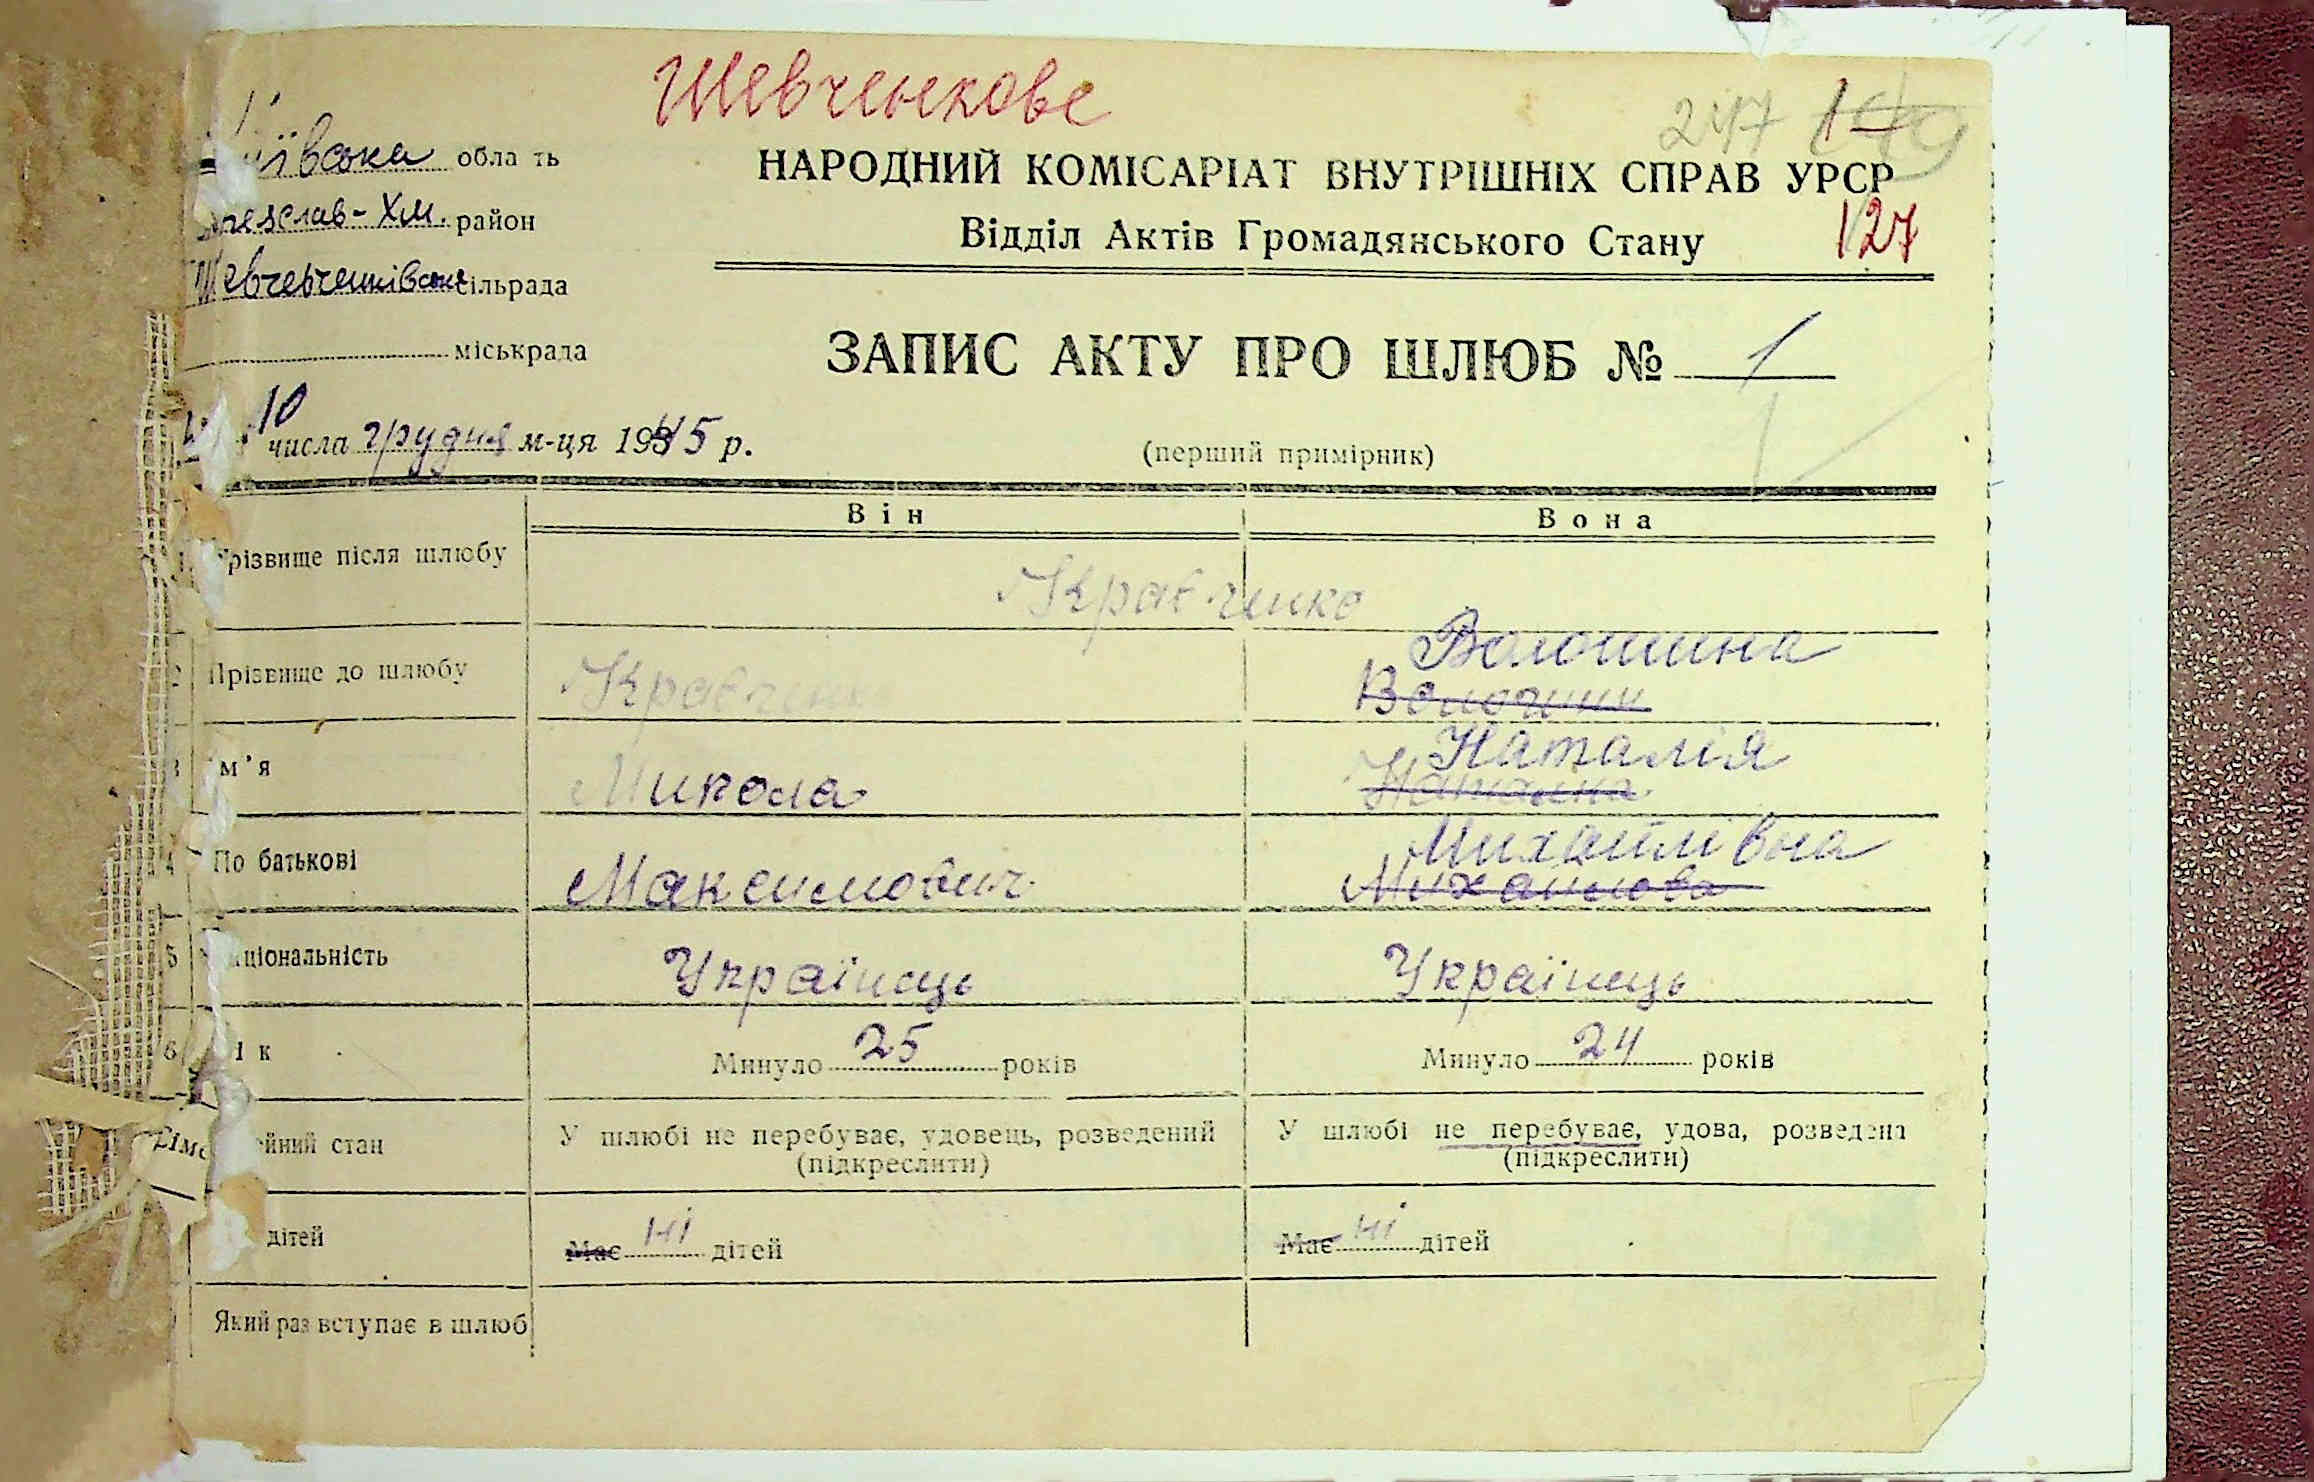 Шевченкове
247
127
ївська обла ть
НАРОДНИЙ КОМІСАРІАТ ВНУТРІШНІХ СПРАВ УРСР
Відділ Актів Громадянського Стану
еяслав-Хм. район
Шевчевченківська сільрада
міськрада
ЗАПИС АКТУ ПРО ШЛЮБ № 1
10 числа грудня м-ця 1945 р.
(перший примірник)
Він Вона
1 Прізвище після шлюбу Кравченко
2 Прізвище до шлюбу Кравченко Волошина
Волошин
3 Ім’я Микола Наталія
Наталка
4 По батькові Максимович Михайлівна
Михайлова
5 Національність Українець Українець
6 Вік Минуло 25 років Минуло 24 років
ейний стан У шлюбі не перебуває, удовець, розведений (підкреслити) У шлюбі не перебуває, удова, розведена (підкреслити)
дітей Має ні дітей Має ні дітей
Який раз вступає в шлюб